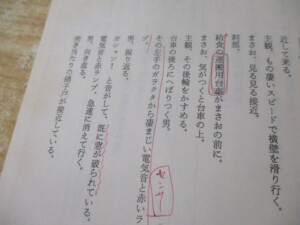 近して来る。
主観、もの凄いスピードで横壁を滑り行く。
まさお、見る見る接近。
刹那、
給食の運搬用台車がまさおの前に。
まさお、気がつくと台車の上。
主観、その後輪をかすめる。
台車の後ろにへばりつく男。
その左手のガラクタから凄まじい電気音と赤いラ
プ。
センサー
男、振り返る。
ガシャン! と音がして、既に窓が破られている。
電気音と赤ランプ、急速に消えて行く。
男、向き直る。
突き当たりの硝子戸が接近している。